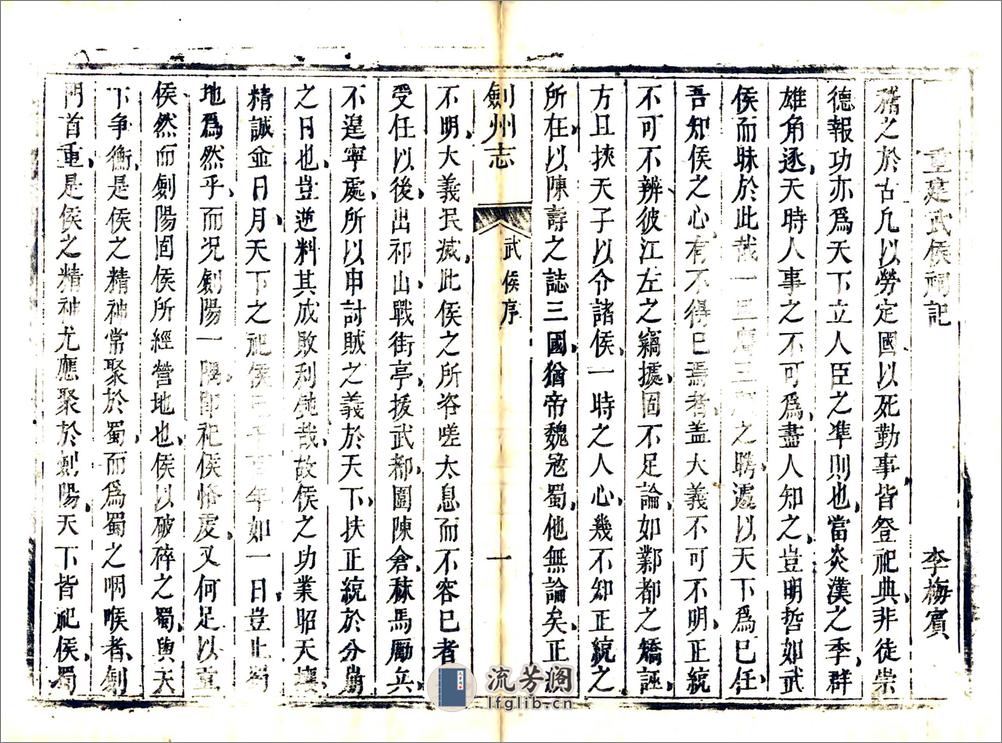 重建武侯祠記
李梅賓
稽之於古凡以勞定國以死勤事皆登祀典非徒崇
德報功亦爲天下立人臣之準則也當炎漢之季群
雄角逐天時人事之不可爲盡人知之豈明哲如武
侯而昧於此哉一旦應三顧之聘遽以天下爲己任
吾知侯之心有不得已焉者盖大義不可不明正統
不可不辨彼江左之竊據固不足論如鄴都之矯誣
方且挾天子以令諸侯一時之人心幾不知正統之
所在以陳壽之誌三國猶帝魏寇蜀他無論矣正
劍州志
武侯序
一
不明大義泯滅此侯之所咨嗟太息而不容已者
受任以後出祁山戰街亭援武都圍陳倉秣馬厲兵
不遑寧處所以申討賊之義於天下扶正統於分崩
之日也豈逆料其成敗利鈍哉故侯之功業昭天壤
精誠金日月天下之祀侯已千百年如一日豈止蜀
地爲然乎而况劍陽一隅即祀侯恪虔又何足以重
侯然而劍陽固侯所經營地也侯以破碎之蜀與天
下争衡是侯之精神常聚於蜀而爲蜀之咽喉者劍
門首重是侯之精神尤應聚於劍陽天下皆祀侯蜀
流芳阁
lfglib.cn